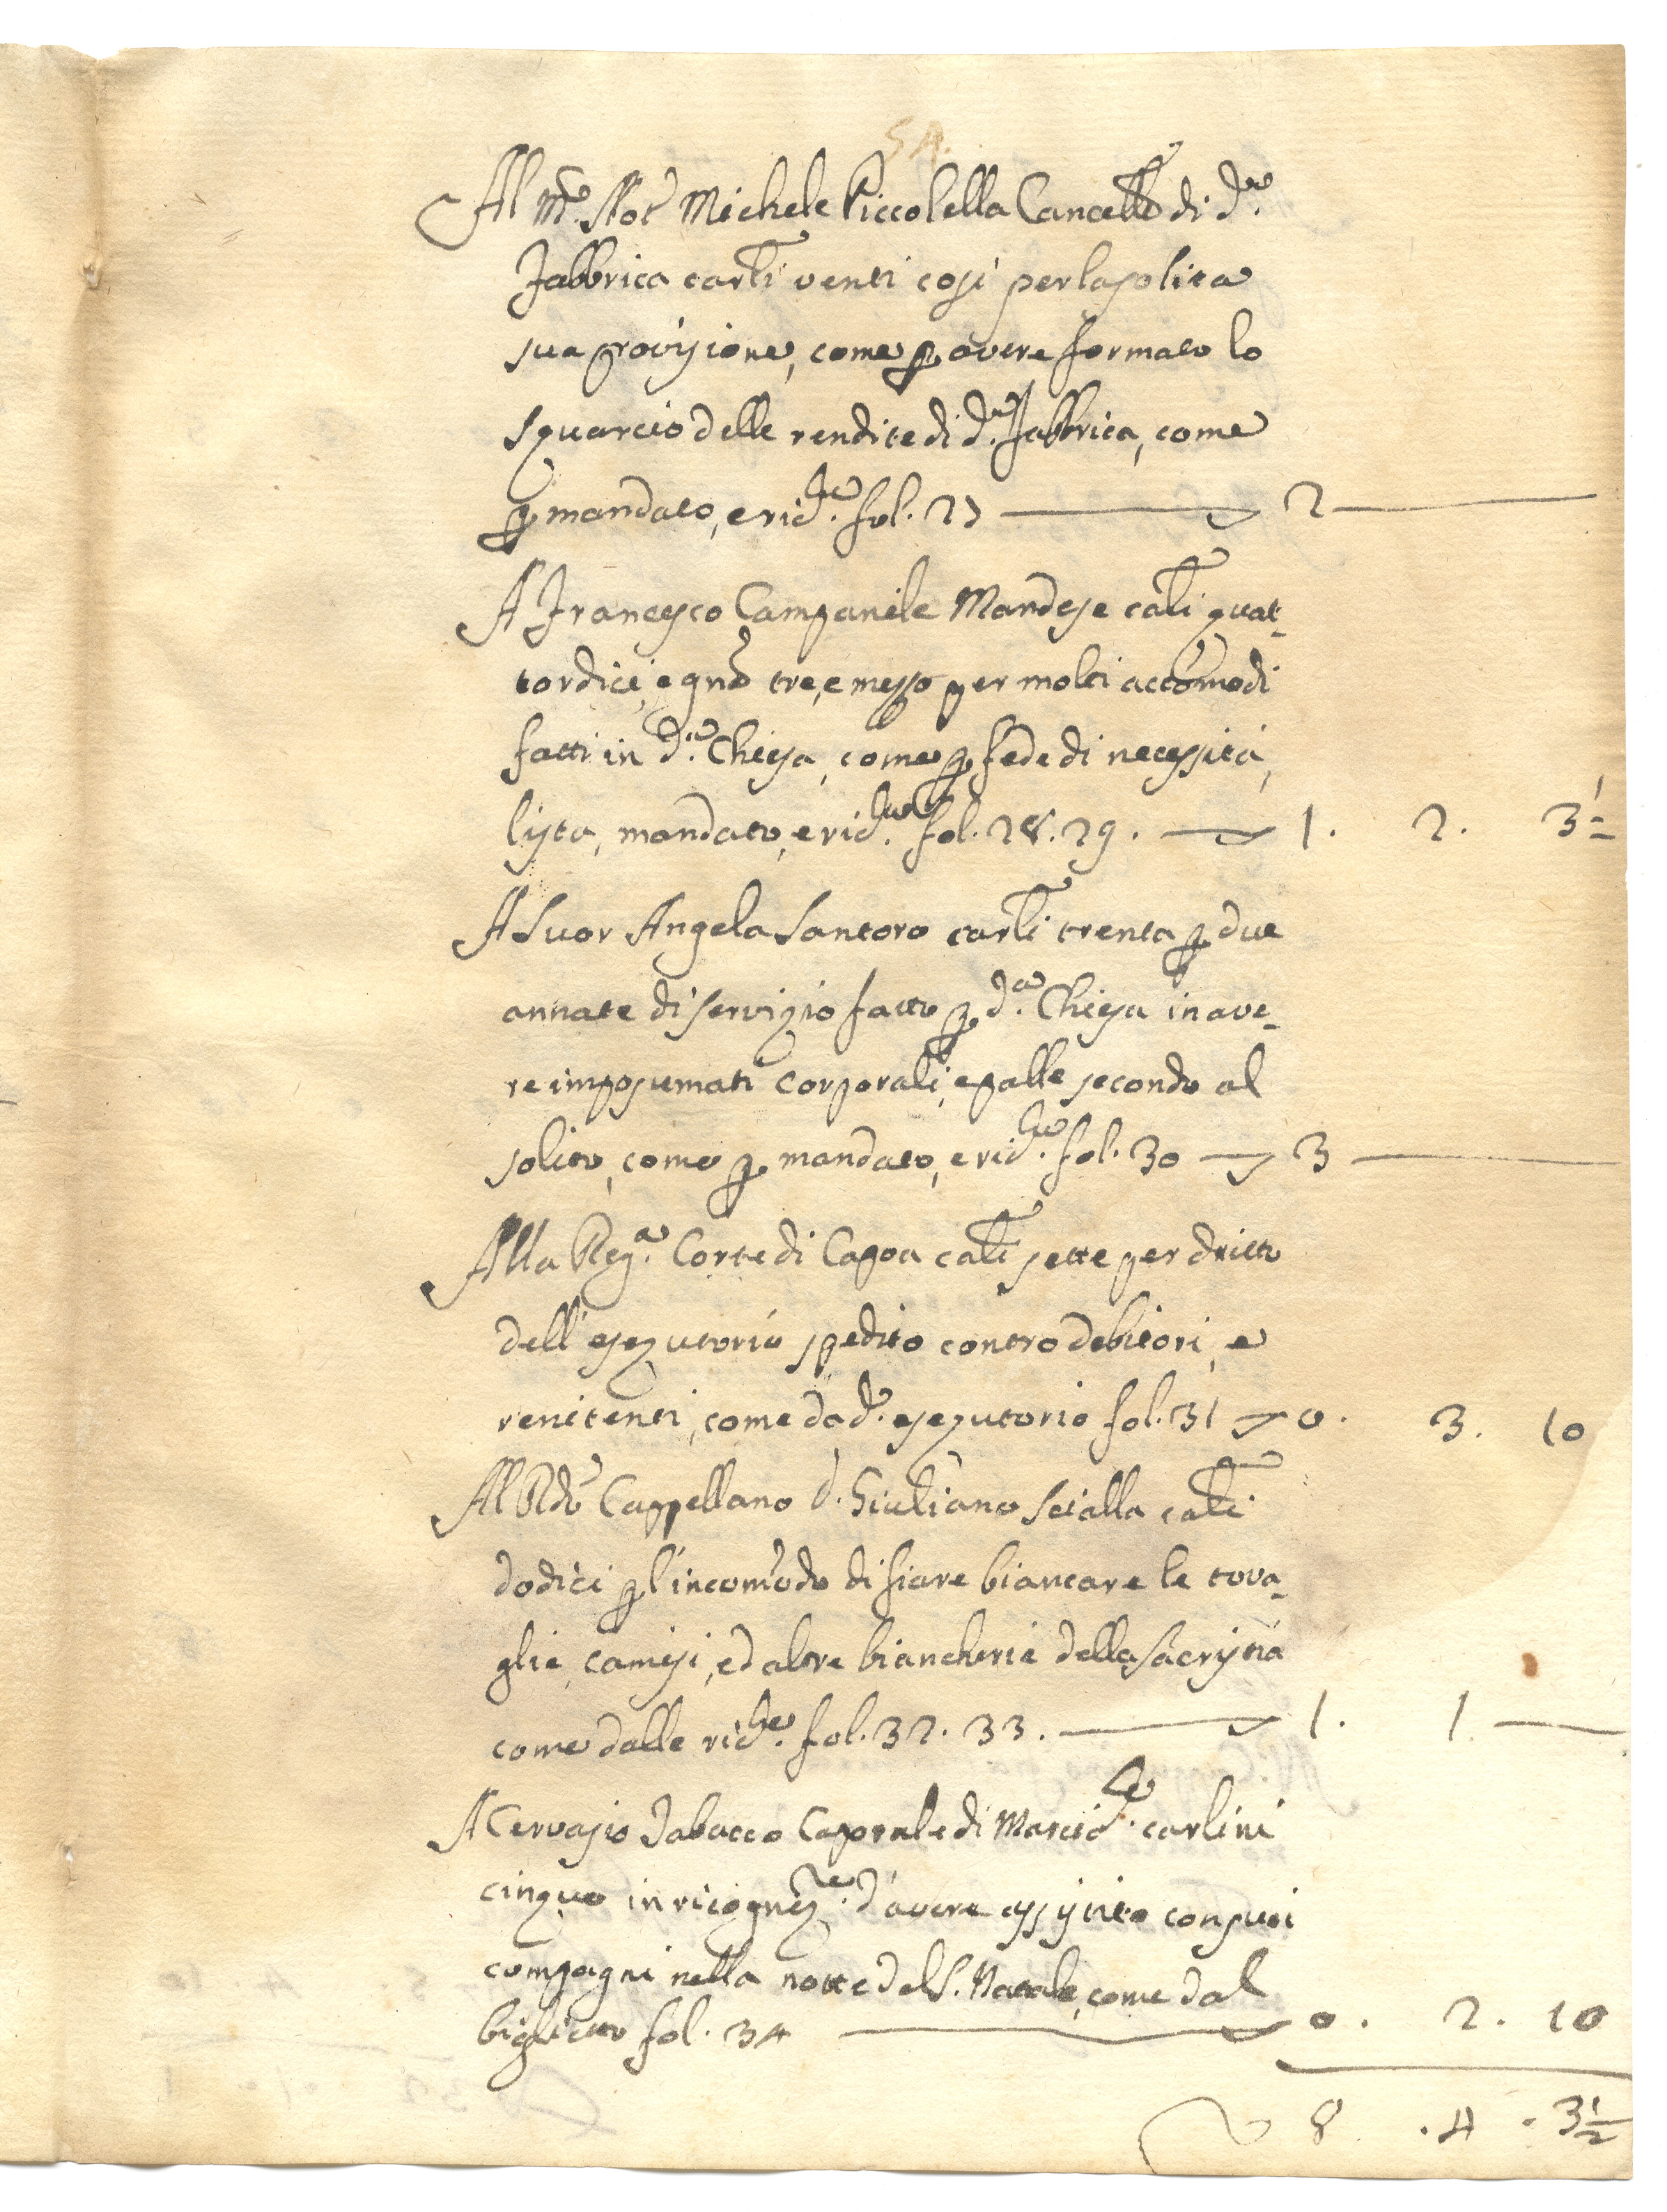 54.
Al M.co Not.r Michele Piccolella Cancell.o di d.a
Fabbrica carli venti così per la solita
sua provisione, come p avere formato lo
squarcio delle rendite di d.a Fabbrica, come
p mandato, e ric.ta fol. 27 2
A Francesco Campanile Mandese carli quat-
tordici, e gna tre, e messo per molti accomodi
fatti in d.a Chiesa, come p fede di necessità,
lista, mandato, e ric.ta fol. 28. 29. 1. 2. 3½
A Suor Angela Santoro carli trenta p due
annate di servizio fatto p d.a Chiesa in ave-
re imposumati corporali, e palle secondo al
solito, come p mandato, e ric.ta fol. 30 3
Alla Reg.a Corte di Capoa carli sette per dritto
dell'esequtorio spedito contro debitori, e
renitenti, come da d.o esequtorio fol. 31 0. 3. 10
Al R.do Cappellano d. Giuliano Scialla carli
dodici p l'incomodo di fare biancare le tova-
glie, camisi, ed altre biancherie della Sacristia
come dalle ric.te fol. 32. 33. 1. 1
A Cervasio Tabacco Caporale di carlini
cinque in ricogniz.ne d'avere assistito con suoi
compagni nella notte del S. Natale, come dal
biglietto fol. 34 0. 2. 10
8. 4. 3½